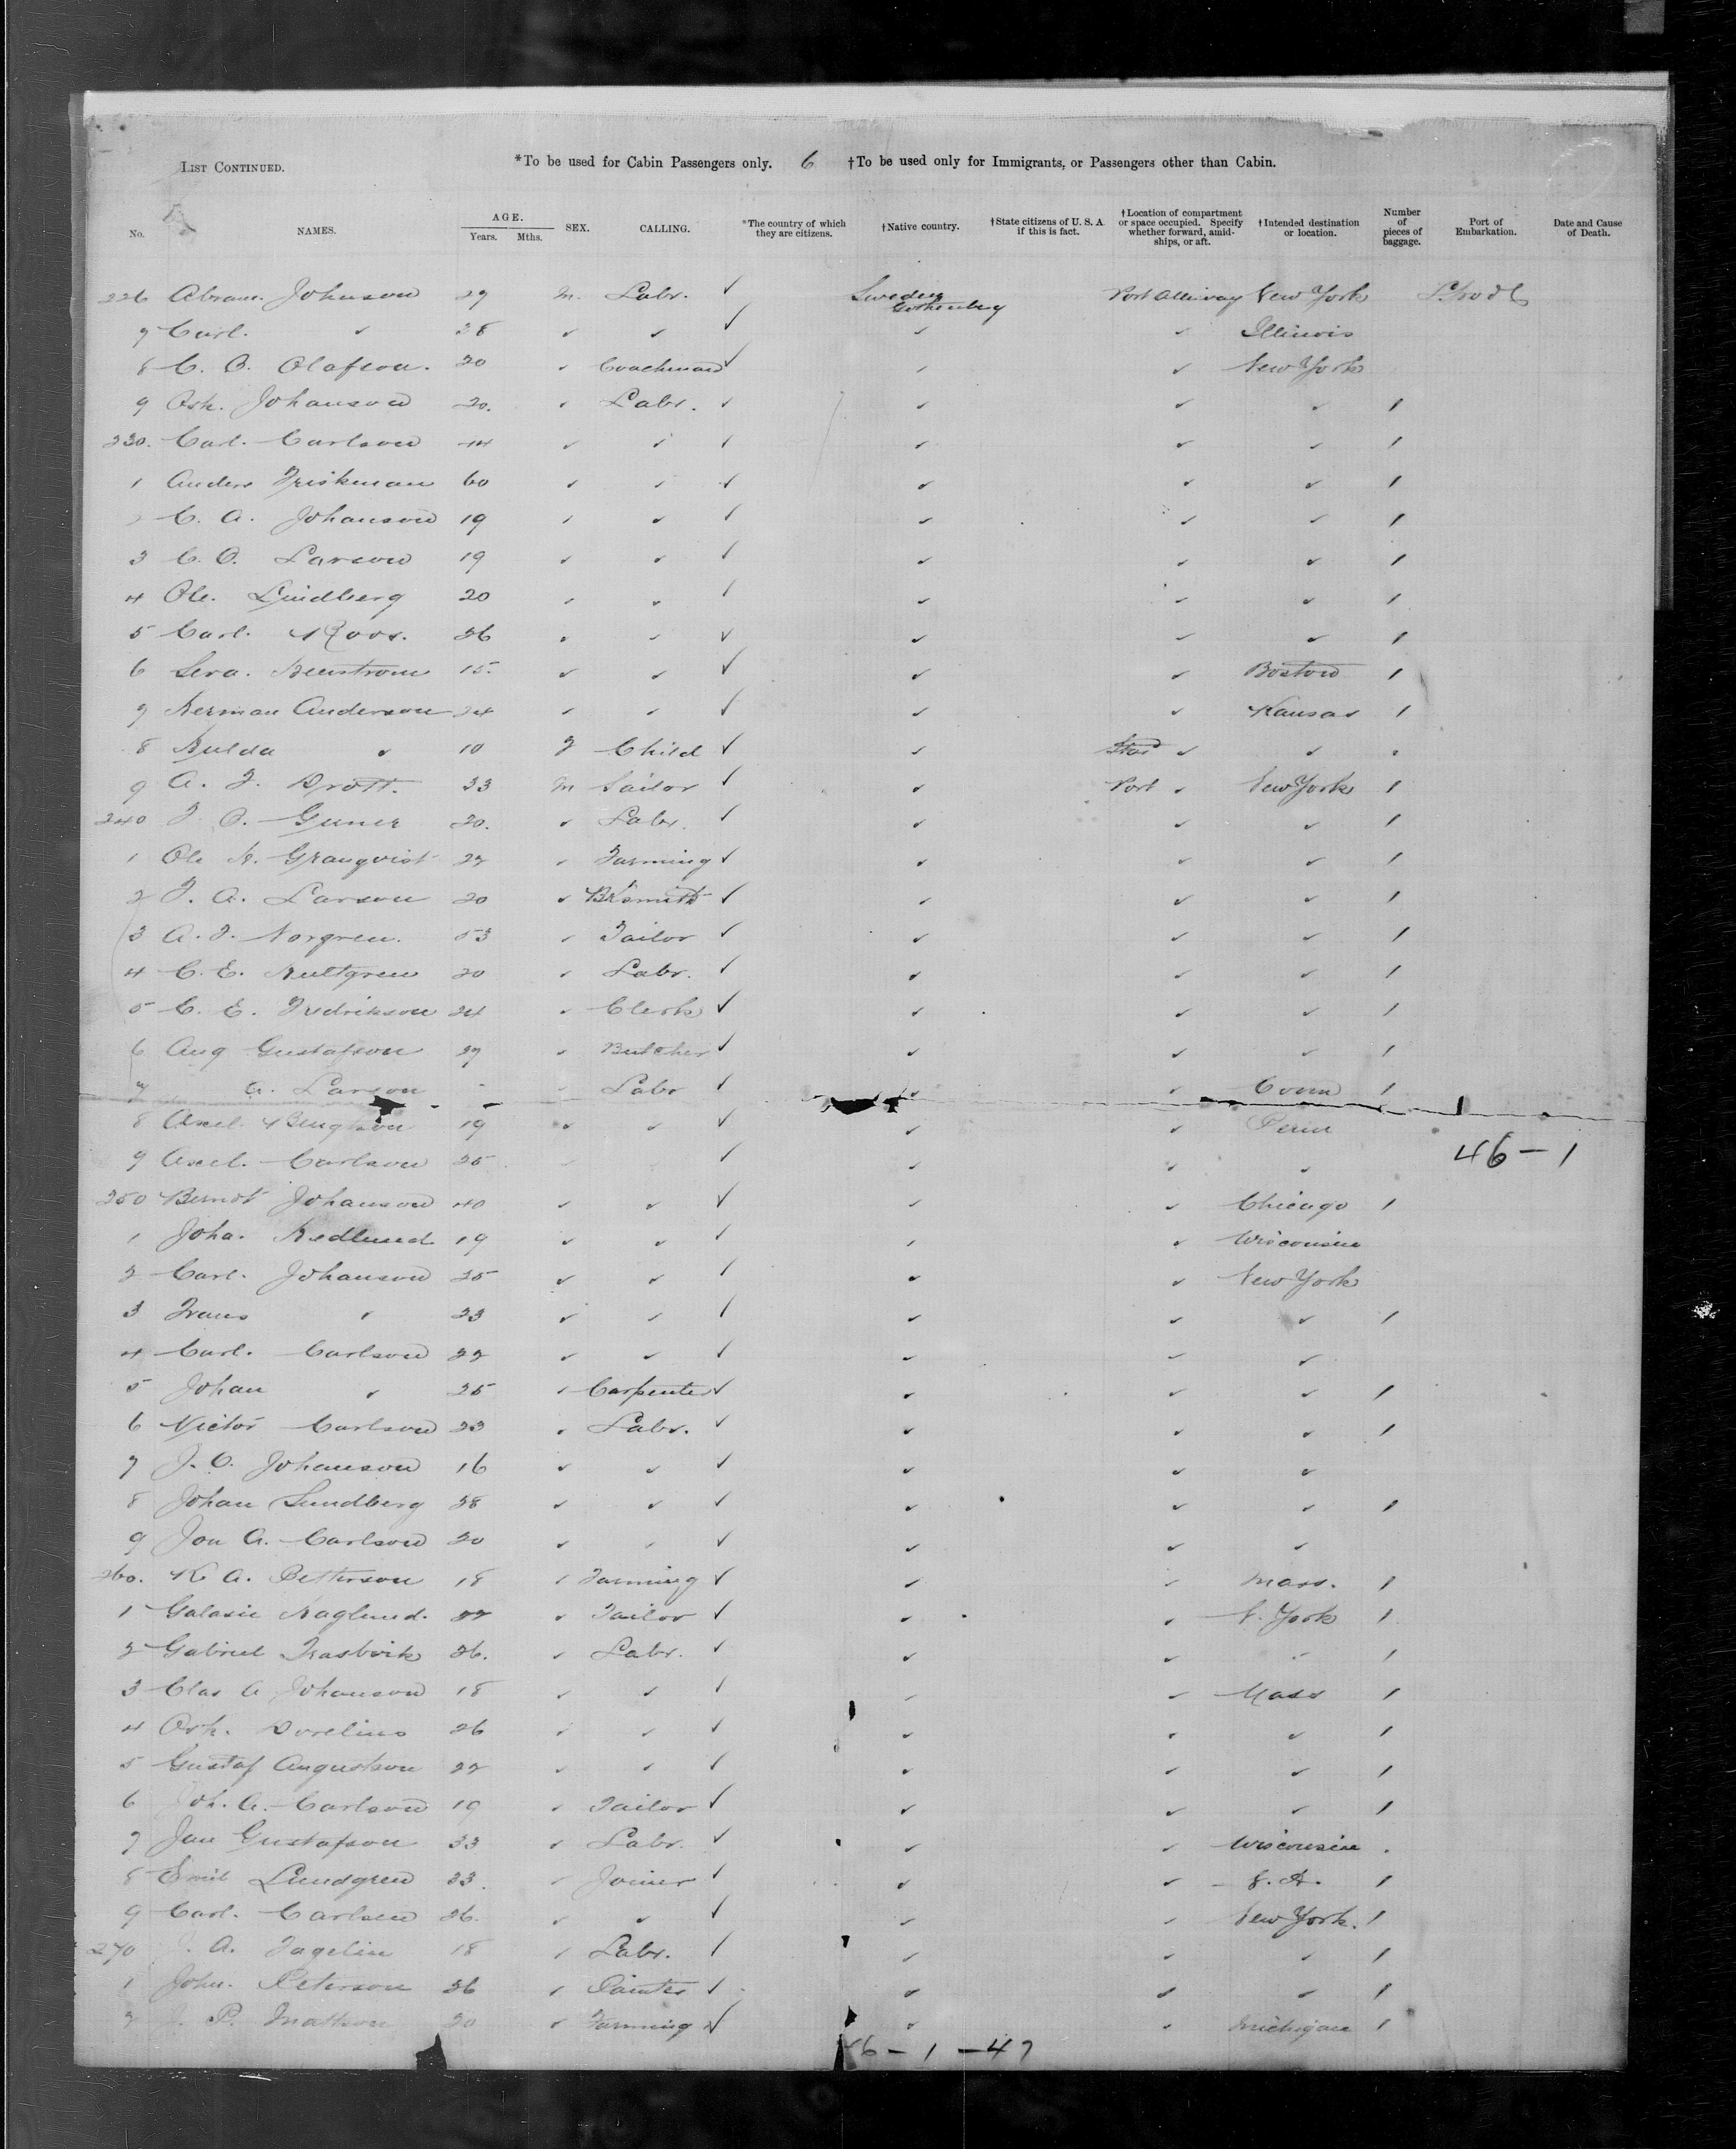 LIST CONTINUED. *To be used for Cabin Passengers only. 6 †To be used only for Immigrants, or Passengers other than Cabin.
No. NAMES. AGE. Years. Mths. SEX. CALLING. *The country of which they are citizens. †Native country. †State citizens of U. S. A. if this is fact. †Location of compartment or space occupied. Specify whether forward, amid-ships, or aft. †Intended destination or location. Number of pieces of baggage. Port of Embarkation. Date and Cause of Death.
226 Abram. Johnson 29 M. Labr. ✓ Sweden Gothenburg Port Alleiway New York
7 Carl. ✓ 28 ✓ ✓ ✓ ✓ ✓ Illinois
8 C. B. Olafson. 20 ✓ Coachman ✓ ✓ ✓ New York
9 Osk. Johanson 20. ✓ Labr. ✓ ✓ ✓ ✓ 1
230. Carl. Carlson 44 ✓ ✓ ✓ ✓ ✓ ✓ 1
1 Anders Friskman 60 ✓ ✓ ✓ ✓ ✓ ✓ 1
2 C. A. Johanson 19 ✓ ✓ ✓ ✓ ✓ ✓ 1
3 C. O. Larson 19 ✓ ✓ ✓ ✓ ✓ ✓ 1
4 Ole. Lindberg 20 ✓ ✓ ✓ ✓ ✓ ✓ 1
5 Carl. Roos. 26 ✓ ✓ ✓ ✓ ✓ ✓ 1
6 15. ✓ ✓ ✓ ✓ ✓ Boston 1
7 Herman Anderson 24 ✓ ✓ ✓ ✓ ✓ Kansas 1
8 Hulda ✓ 10 F Child ✓ ✓ ✓ ✓ ✓
9 A. F. Drott. 33 M Sailor ✓ ✓ Port ✓ New York 1
240 20. ✓ Labr. ✓ ✓ ✓ ✓ 1
1 Ole N. Granqvist 22 ✓ Farming ✓ ✓ ✓ ✓ 1
2 F. A. Larson 20 ✓ Bksmith ✓ ✓ ✓ ✓ 1
3 A. F. Norgren. 53 ✓ Tailor ✓ ✓ ✓ ✓ 1
4 C. E. Hultgren 20 ✓ Labr. ✓ ✓ ✓ ✓ 1
5 C. E. Fredrikson 24 ✓ Clerk ✓ ✓ ✓ ✓ 1
6 Aug Gustafson 27 ✓ Butcher ✓ ✓ ✓ ✓ 1
7 A. Larson Labr ✓ ✓ ✓ Conn 1
8 Axel. Bengtson 19 ✓ ✓ ✓ ✓ ✓
9 Axel. Carlson 25 ✓ ✓ ✓ ✓ 46 – 1
250 Berndt Johanson 40 ✓ ✓ ✓ ✓ ✓ Chicago 1
1 Joha. Hedlund 19 ✓ ✓ ✓ ✓ ✓ Wisconsin
2 Carl. Johanson 25 ✓ ✓ ✓ ✓ ✓ New York
3 Frans ✓ 23 ✓ ✓ ✓ ✓ ✓ ✓ 1
4 Carl. Carlson 22 ✓ ✓ ✓ ✓ ✓ ✓
5 Johan ✓ 25 ✓ Carpenter ✓ ✓ ✓ ✓ 1
6 Victor Carlson 23 ✓ Labr. ✓ ✓ ✓ ✓ 1
7 J. O. Johanson 16 ✓ ✓ ✓ ✓ ✓ ✓
8 Johan Lundberg 28 ✓ ✓ ✓ ✓ ✓ ✓ 1
9 Jon A. Carlson 20 ✓ ✓ ✓ ✓ ✓ ✓
260. K A. Petterson 18 ✓ Farming ✓ ✓ ✓ Mass. 1
1 Haglund. 22 ✓ Tailor ✓ ✓ ✓ N. York 1
2 Gabriel 26. ✓ Labr. ✓ ✓ ✓ ✓ 1
3 Clas A Johanson 18 ✓ ✓ ✓ ✓ ✓ Mass 1
4 Osk. Dorelius 26 ✓ ✓ ✓ ✓ ✓ ✓ 1
5 Gustaf Augustson 22 ✓ ✓ ✓ ✓ ✓ ✓ 1
6 Joh. A. Carlson 19 ✓ Tailor ✓ ✓ ✓ ✓ 1
7 Jan Gustafson 33 ✓ Labr. ✓ ✓ ✓ Wisconsin
8 Emil Lundgren 33. ✓ Joiner ✓ ✓ ✓ 1
9 Carl. Carlsen 26. ✓ ✓ ✓ ✓ ✓ New York. 1
270 J. A. Fagelin 18 ✓ Labr. ✓ ✓ ✓ ✓ 1
1 John. Peterson 26 ✓ Painter ✓ ✓ ✓ ✓ 1
2 J. P. Mattson 20 ✓ Farming ✓ ✓ ✓ Michigan 1
46 – 1 – 47